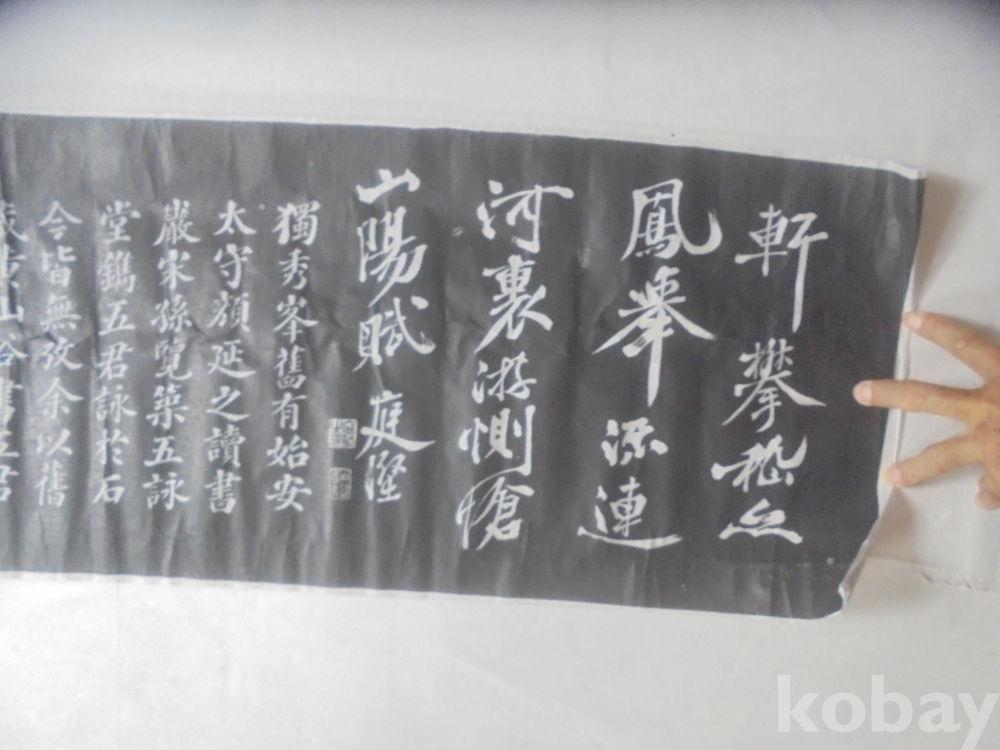 軒攀嵇亦
鳳舉流連
河裏游惻愴
山陽賦 庭堅
獨秀峯舊有始安
太守顔延之讀書
巖宋孫覽築五詠
堂鐫五君詠於石
今皆無攷余以舊
黃山谷書五君
kobay